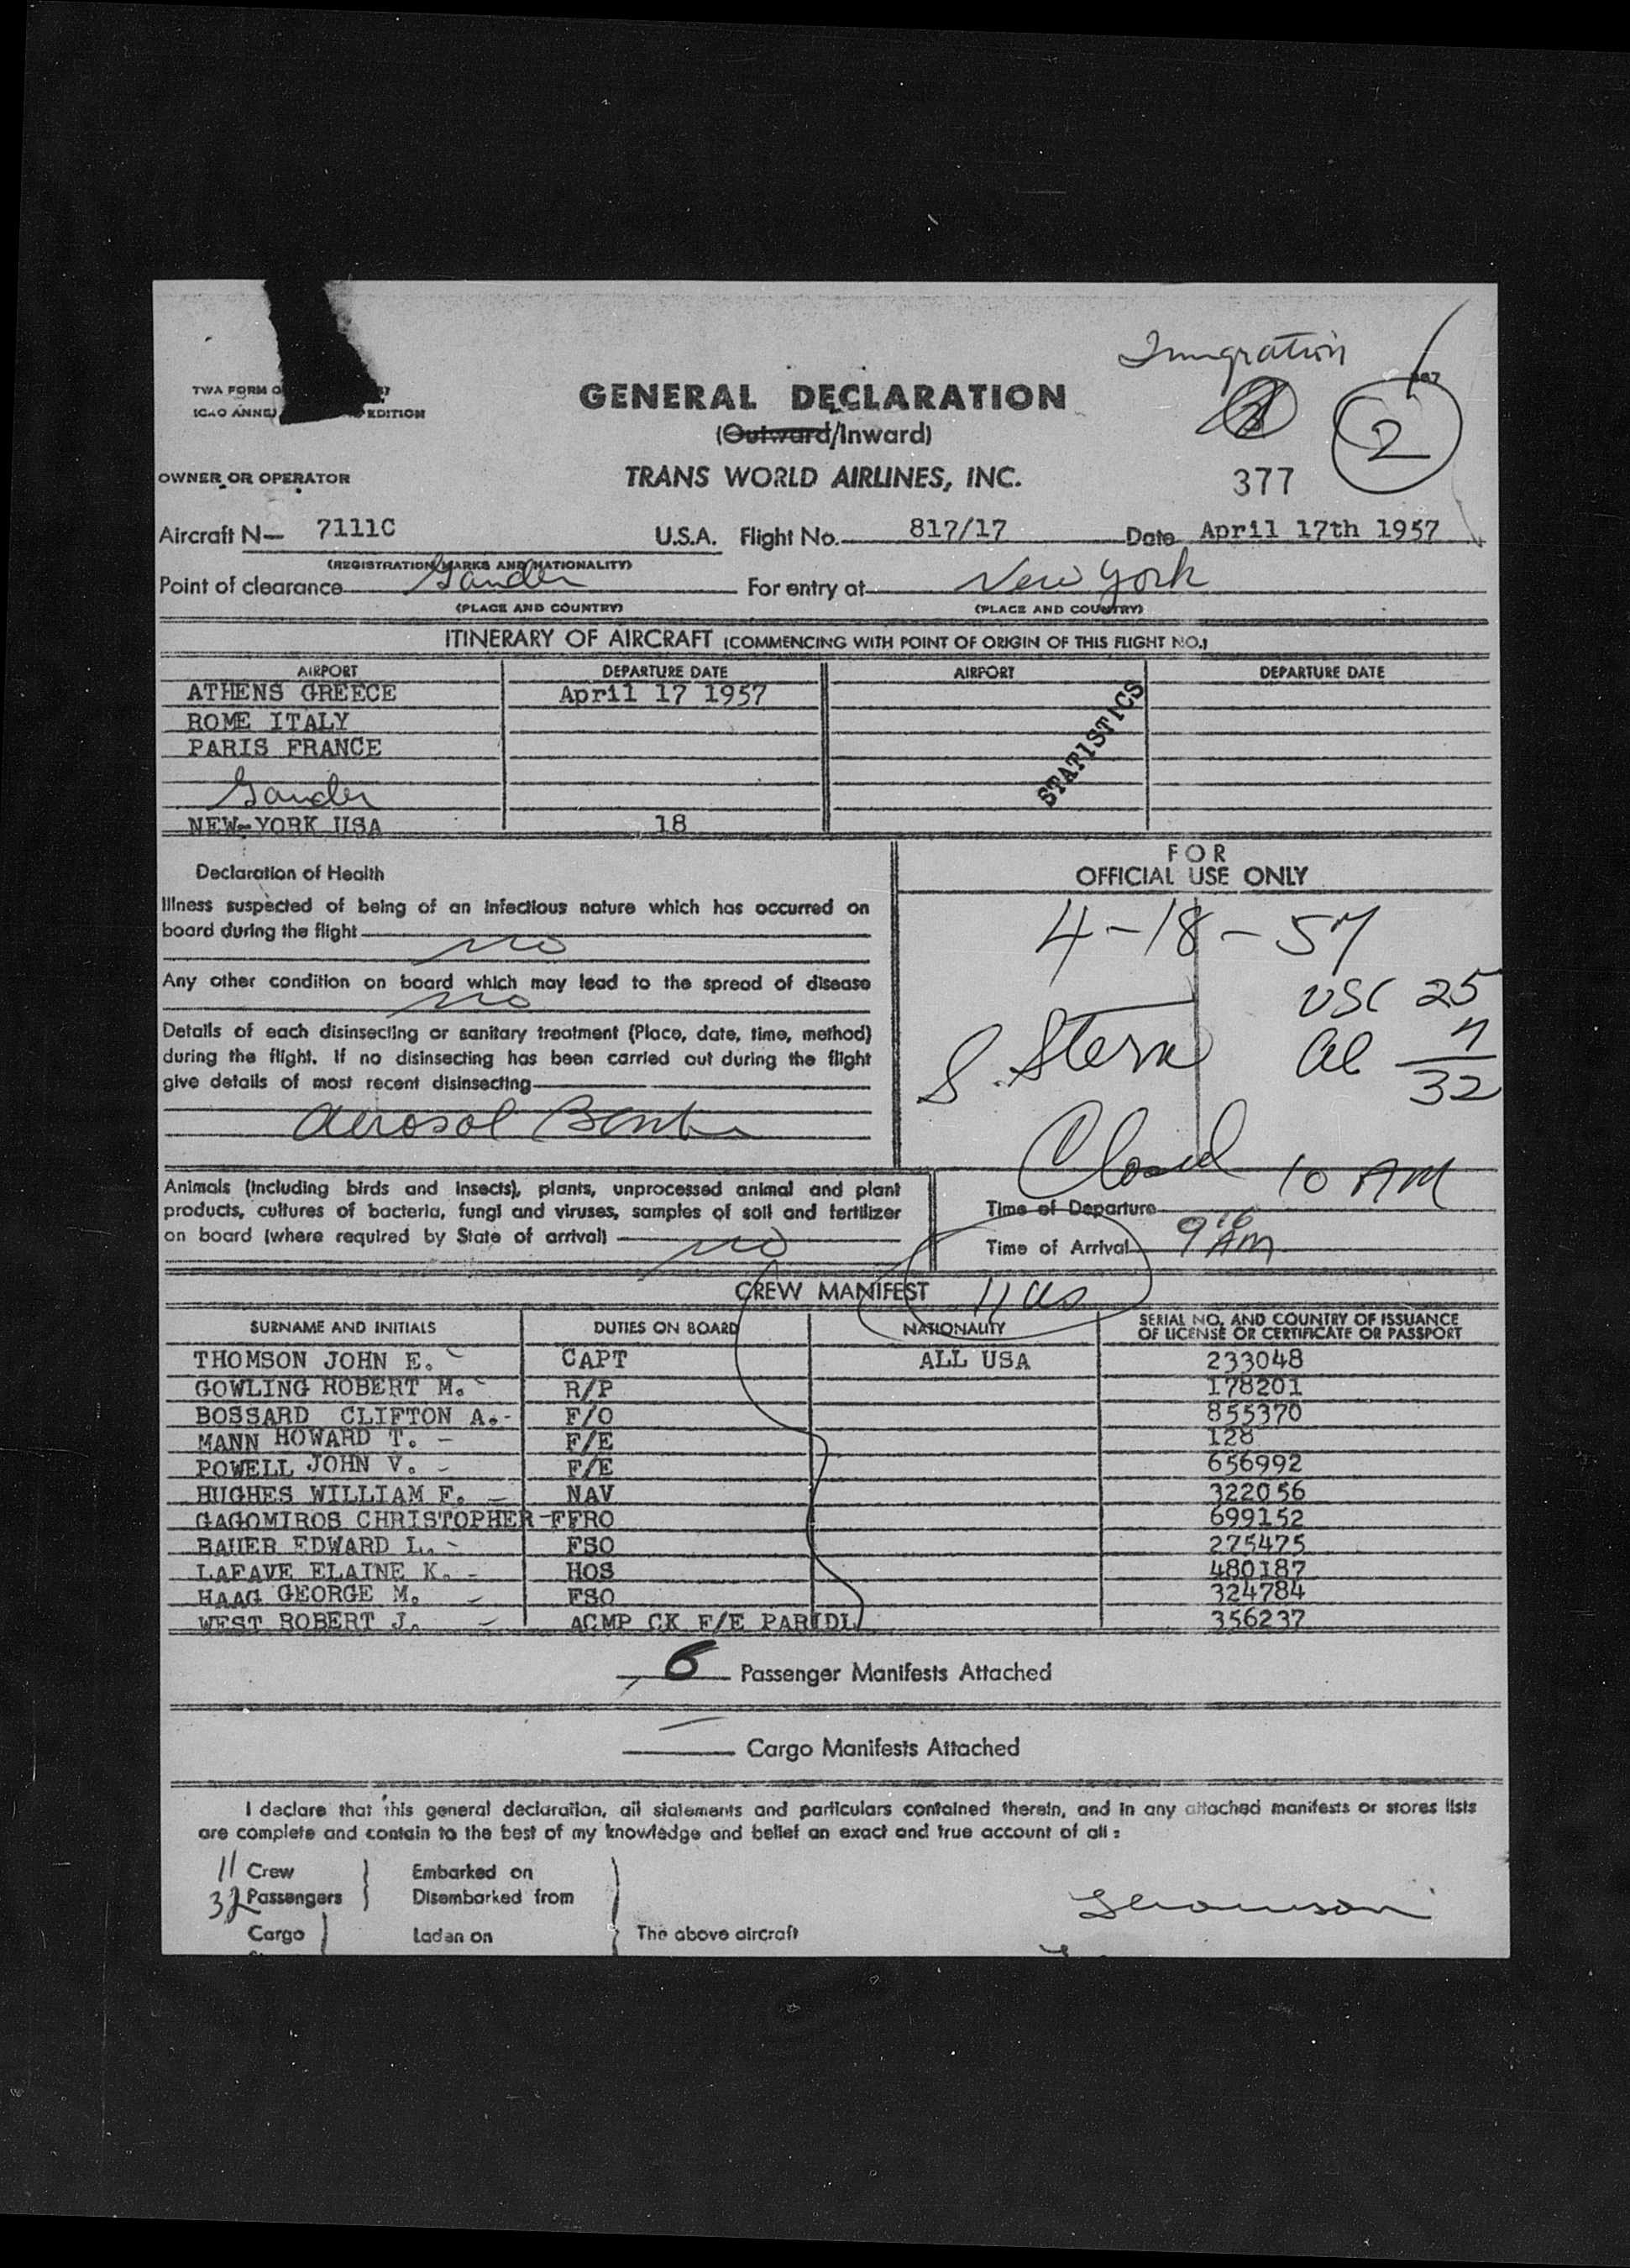 Immigration
TWA FORM
ICAO ANNEX EDITION
GENERAL DECLARATION
(Outward/Inward)
2
OWNER OR OPERATOR
TRANS WORLD AIRLINES, INC.
377
Aircraft N— 7111C U.S.A. Flight No. 817/17 Date April 17th 1957
(REGISTRATION MARKS AND NATIONALITY)
Point of clearance Gander For entry at New York
(PLACE AND COUNTRY) (PLACE AND COUNTRY)
ITINERARY OF AIRCRAFT (COMMENCING WITH POINT OF ORIGIN OF THIS FLIGHT NO.)
AIRPORT DEPARTURE DATE AIRPORT DEPARTURE DATE
ATHENS GREECE April 17 1957
ROME ITALY
PARIS FRANCE
STATISTICS
Gander
NEW-YORK USA 18
Declaration of Health
Illness suspected of being of an infectious nature which has occurred on
board during the flight no
Any other condition on board which may lead to the spread of disease
no
Details of each disinsecting or sanitary treatment (Place, date, time, method)
during the flight. If no disinsecting has been carried out during the flight
give details of most recent disinsecting
aerosol Bomb
FOR
OFFICIAL USE ONLY
4-18-57
USC 25
S. Stern
al 7
32
Closed 10 AM
Animals (including birds and insects), plants, unprocessed animal and plant
products, cultures of bacteria, fungi and viruses, samples of soil and fertilizer
on board (where required by State of arrival) no
Time of Departure
Time of Arrival 9 16 AM
CREW MANIFEST 11 us
SURNAME AND INITIALS DUTIES ON BOARD NATIONALITY SERIAL NO. AND COUNTRY OF ISSUANCE
OF LICENSE OR CERTIFICATE OR PASSPORT
THOMSON JOHN E. CAPT ALL USA 233048
GOWLING ROBERT M. R/P 178201
BOSSARD CLIFTON A.- F/O 855370
MANN HOWARD T. - F/E 128
POWELL JOHN V. - F/E 656992
HUGHES WILLIAM F. - NAV 322056
GAGOMIROS CHRISTOPHER-FFRO 699152
BAUER EDWARD L. - FSO 275475
LAFAVE ELAINE K. - HOS 480187
HAAG GEORGE M. - FSO 324784
WEST ROBERT J. - ACMP CK F/E PARIDL 356237
6 Passenger Manifests Attached
Cargo Manifests Attached
I declare that this general declaration, all statements and particulars contained therein, and in any attached manifests or stores lists
are complete and contain to the best of my knowledge and belief an exact and true account of all :
11 Crew Embarked on
32 Passengers Disembarked from
Thomson
Cargo Laden on The above aircraft